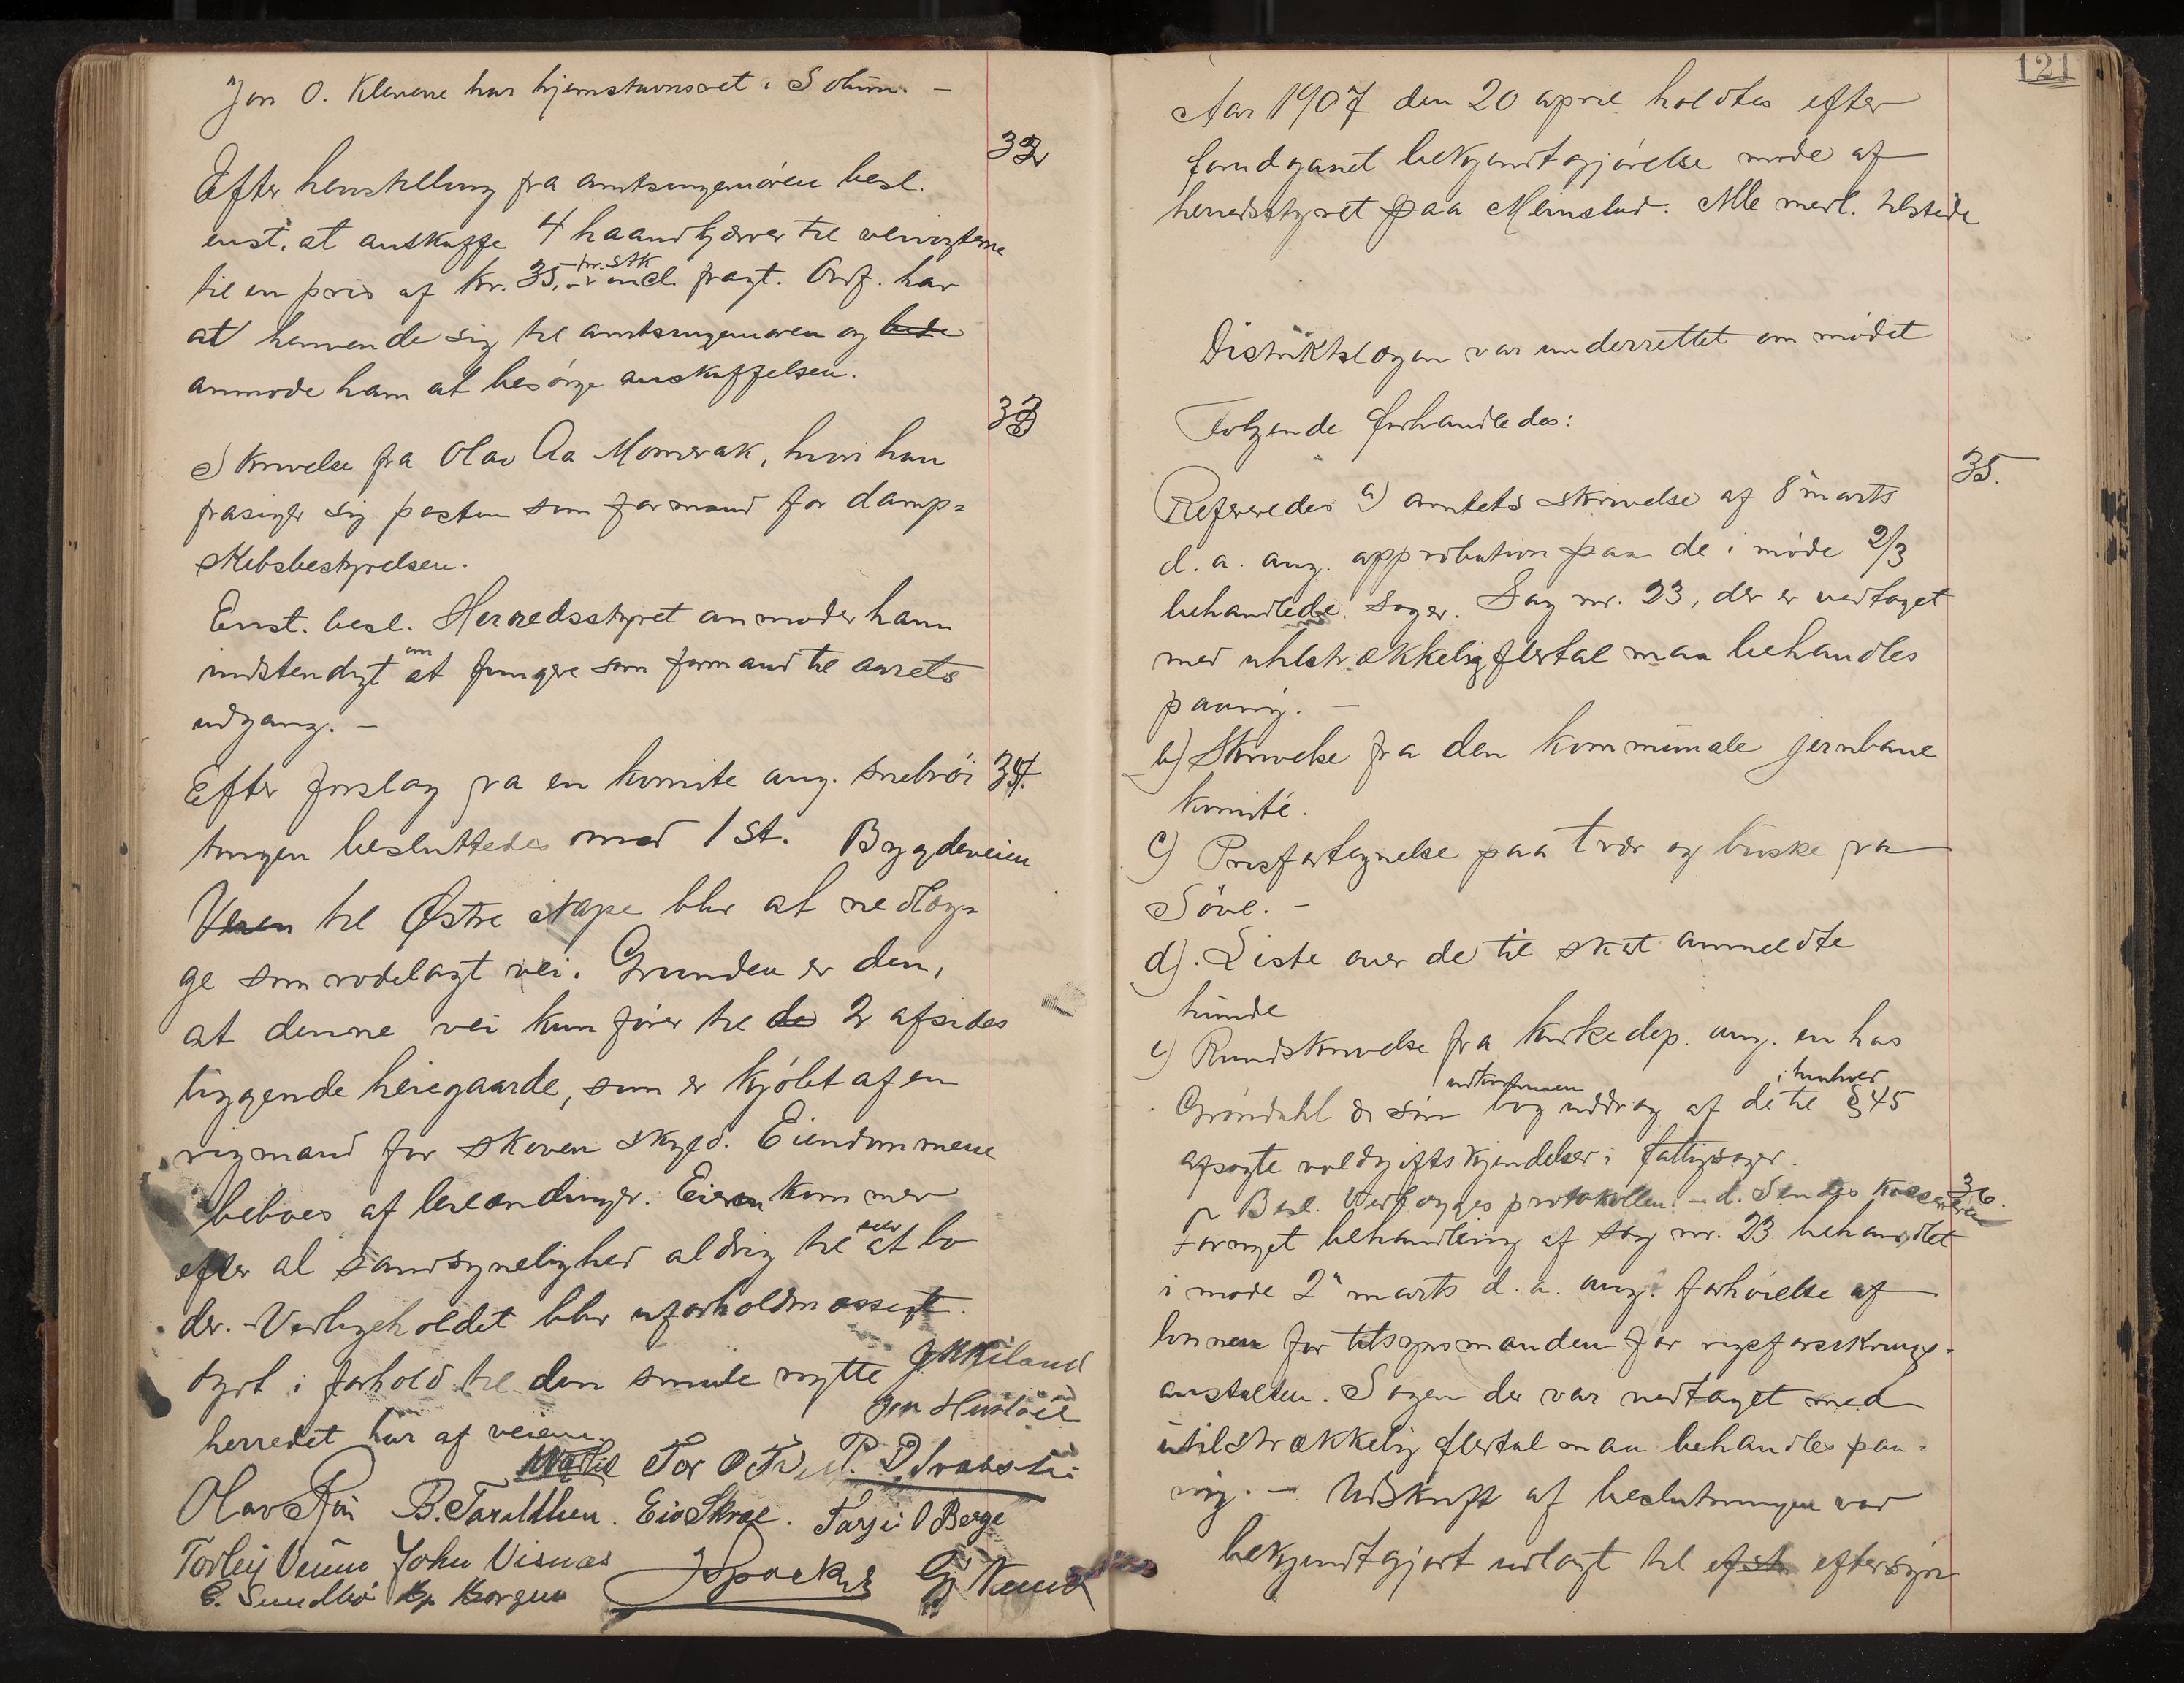 "Jon O. Klevene har hjemstavnsret i Solum. —
32
Efter henstilling fra amtsingeniøren besl.
enst. at anskaffe 4 haandkjærrer til veivogterne
til en pris af kr. 35.- pr. stk incl. fragt. Ordf. har
at henvende sig til amtsingeniøren og bede
anmode ham at besørge anskaffelsen.
33
Skrivelse fra Olav Aa Momrak, hvori han
frasiger sig posten som formand for damp=
skibsbestyrelsen.
Enst. besl. Herredsstyret anmoder ham
indstendigt om at fungere som formand til aarets
udgang. —
Efter forslag fra en komite ang. snebrøi 34.
tingen besluttedes med 1 st. Bygdeveien
Veien til Østre Stape blir at nedlæg=
ge som rodelagt vei. Grunden er den,
at denne vei kun fører til de 2 afsides
liggende heiegaarde, som er kjøbt af en
rigmand for skoven skyld. Eiendommene
beboes af leilændinger. Eieren kommer
efter al sandsynelighed aldrig til selv at bo
der. - Vedligeholdet blir uforholdmæssigt
dyrt i forhold til den smule nytte
herredet har af veien.
G K Kiland
Jon Hustöil
Tor O
Olav B. Taraldlien. Eiv Skræ. Tarjei O Berge
Torleiv Venum John Visnæs
E. Sundbø Kp Borgen
121
Aar 1907 den 20 april holdtes efter
forudganet bekjendtgjørelse møde af
herredsstyret paa Meinstad. Alle medl. tilstede
Distriktslægen var underrettet om mødet
Følgende forhandledes:
35.
Refereredes a) amtets skrivelse af 8" marts
d. a. ang. approbation paa de i møde 2/3
behandlede sager. Sag nr. 23, der er vedtaget
med utilstrækkelig flertal maa behandles
paany. —
b) Skrivelse fra den kommunale jernbane
komité.
c) Prisfortegnelse paa trær og buske fra
Söve. -
d). Liste over de til skat anmeldte
hunde
e) Rundskrivelse fra kirkedep. ang. en hos
Grøndahl & søn udkommen bog uddrag af de i henhold til § 45
afsagte voldgiftskjendelser i fattigsager.
Besl. Vedlægges protokollen. - d. Sendes kassereren
36.
Fornyet behandling af sag nr. 23 behandlet
i møde 2" marts d. a. ang. forhøielse af
lønnen for tilsynsmanden for rigsforsikrings-
anstalten. Sagen der var vedtaget med
utilstrækkelig flertal maa behandles paa=
ny. — Udskrift af beslutningen var
bekjendtgjort udlagt til efst eftersyn